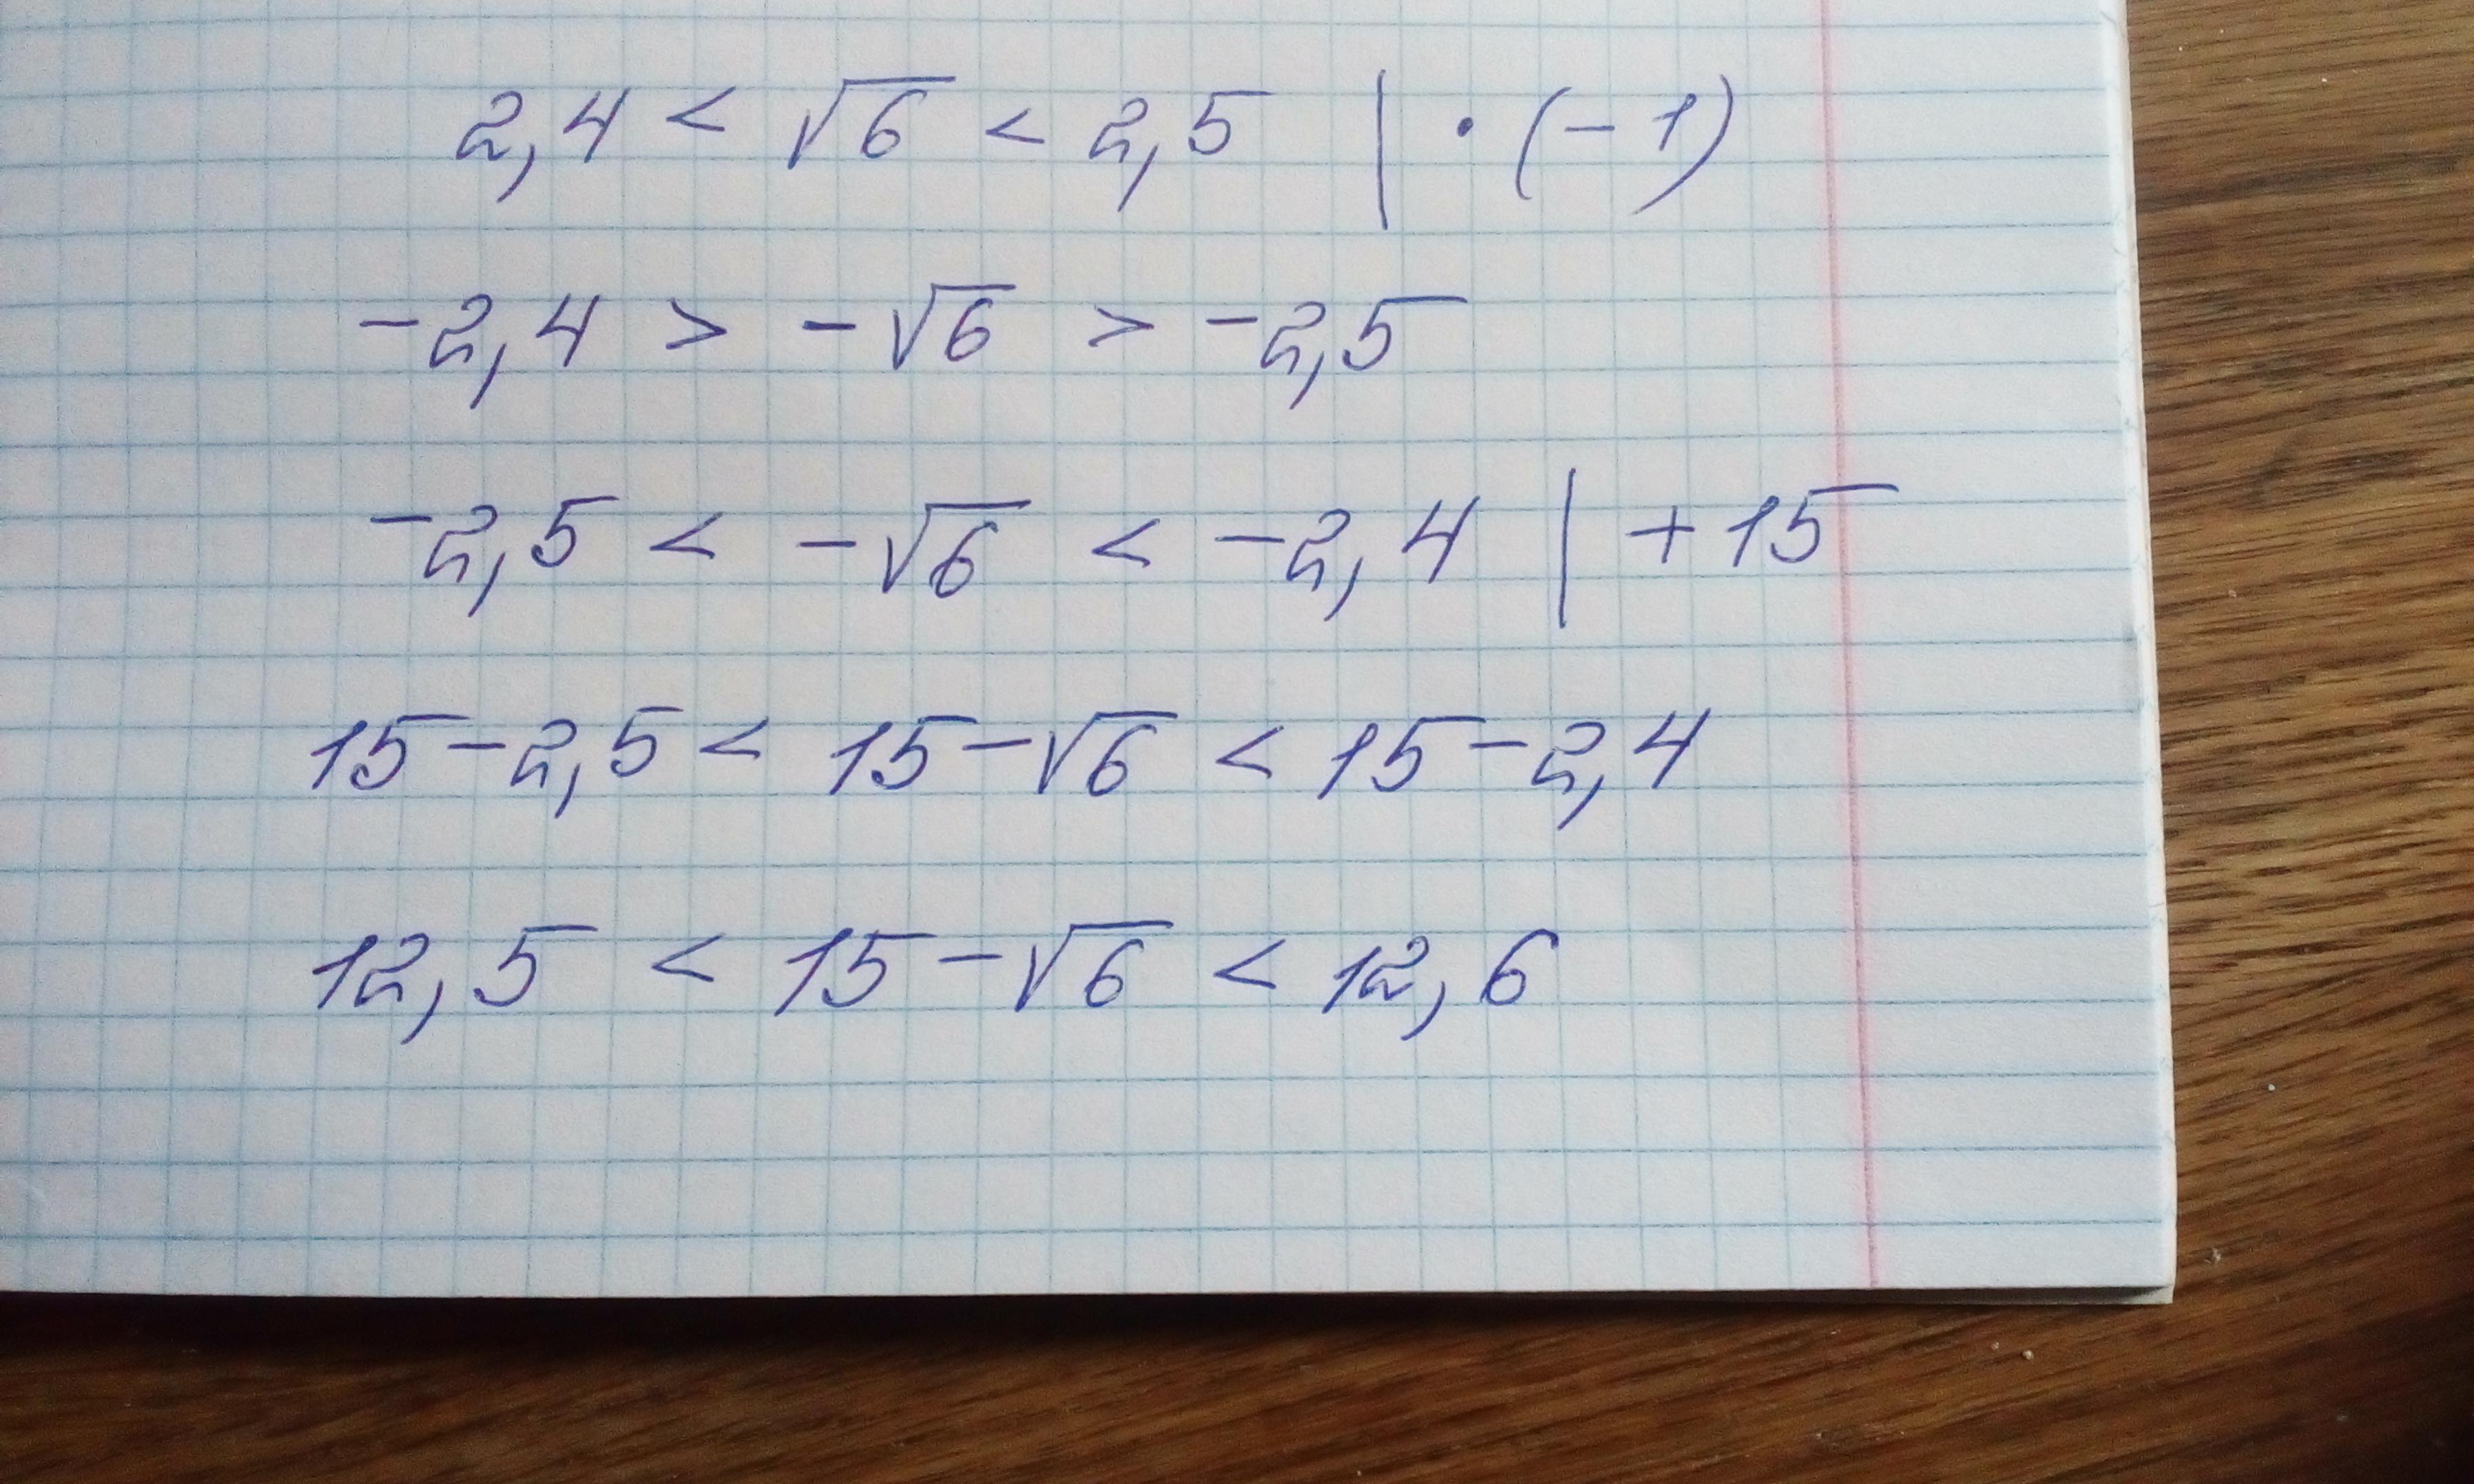 2,4 < √6 < 2,5 | · (-1)
-2,4 > -√6 > -2,5
-2,5 < -√6 < -2,4 | +15
15-2,5 < 15-√6 < 15-2,4
12,5 < 15-√6 < 12,6